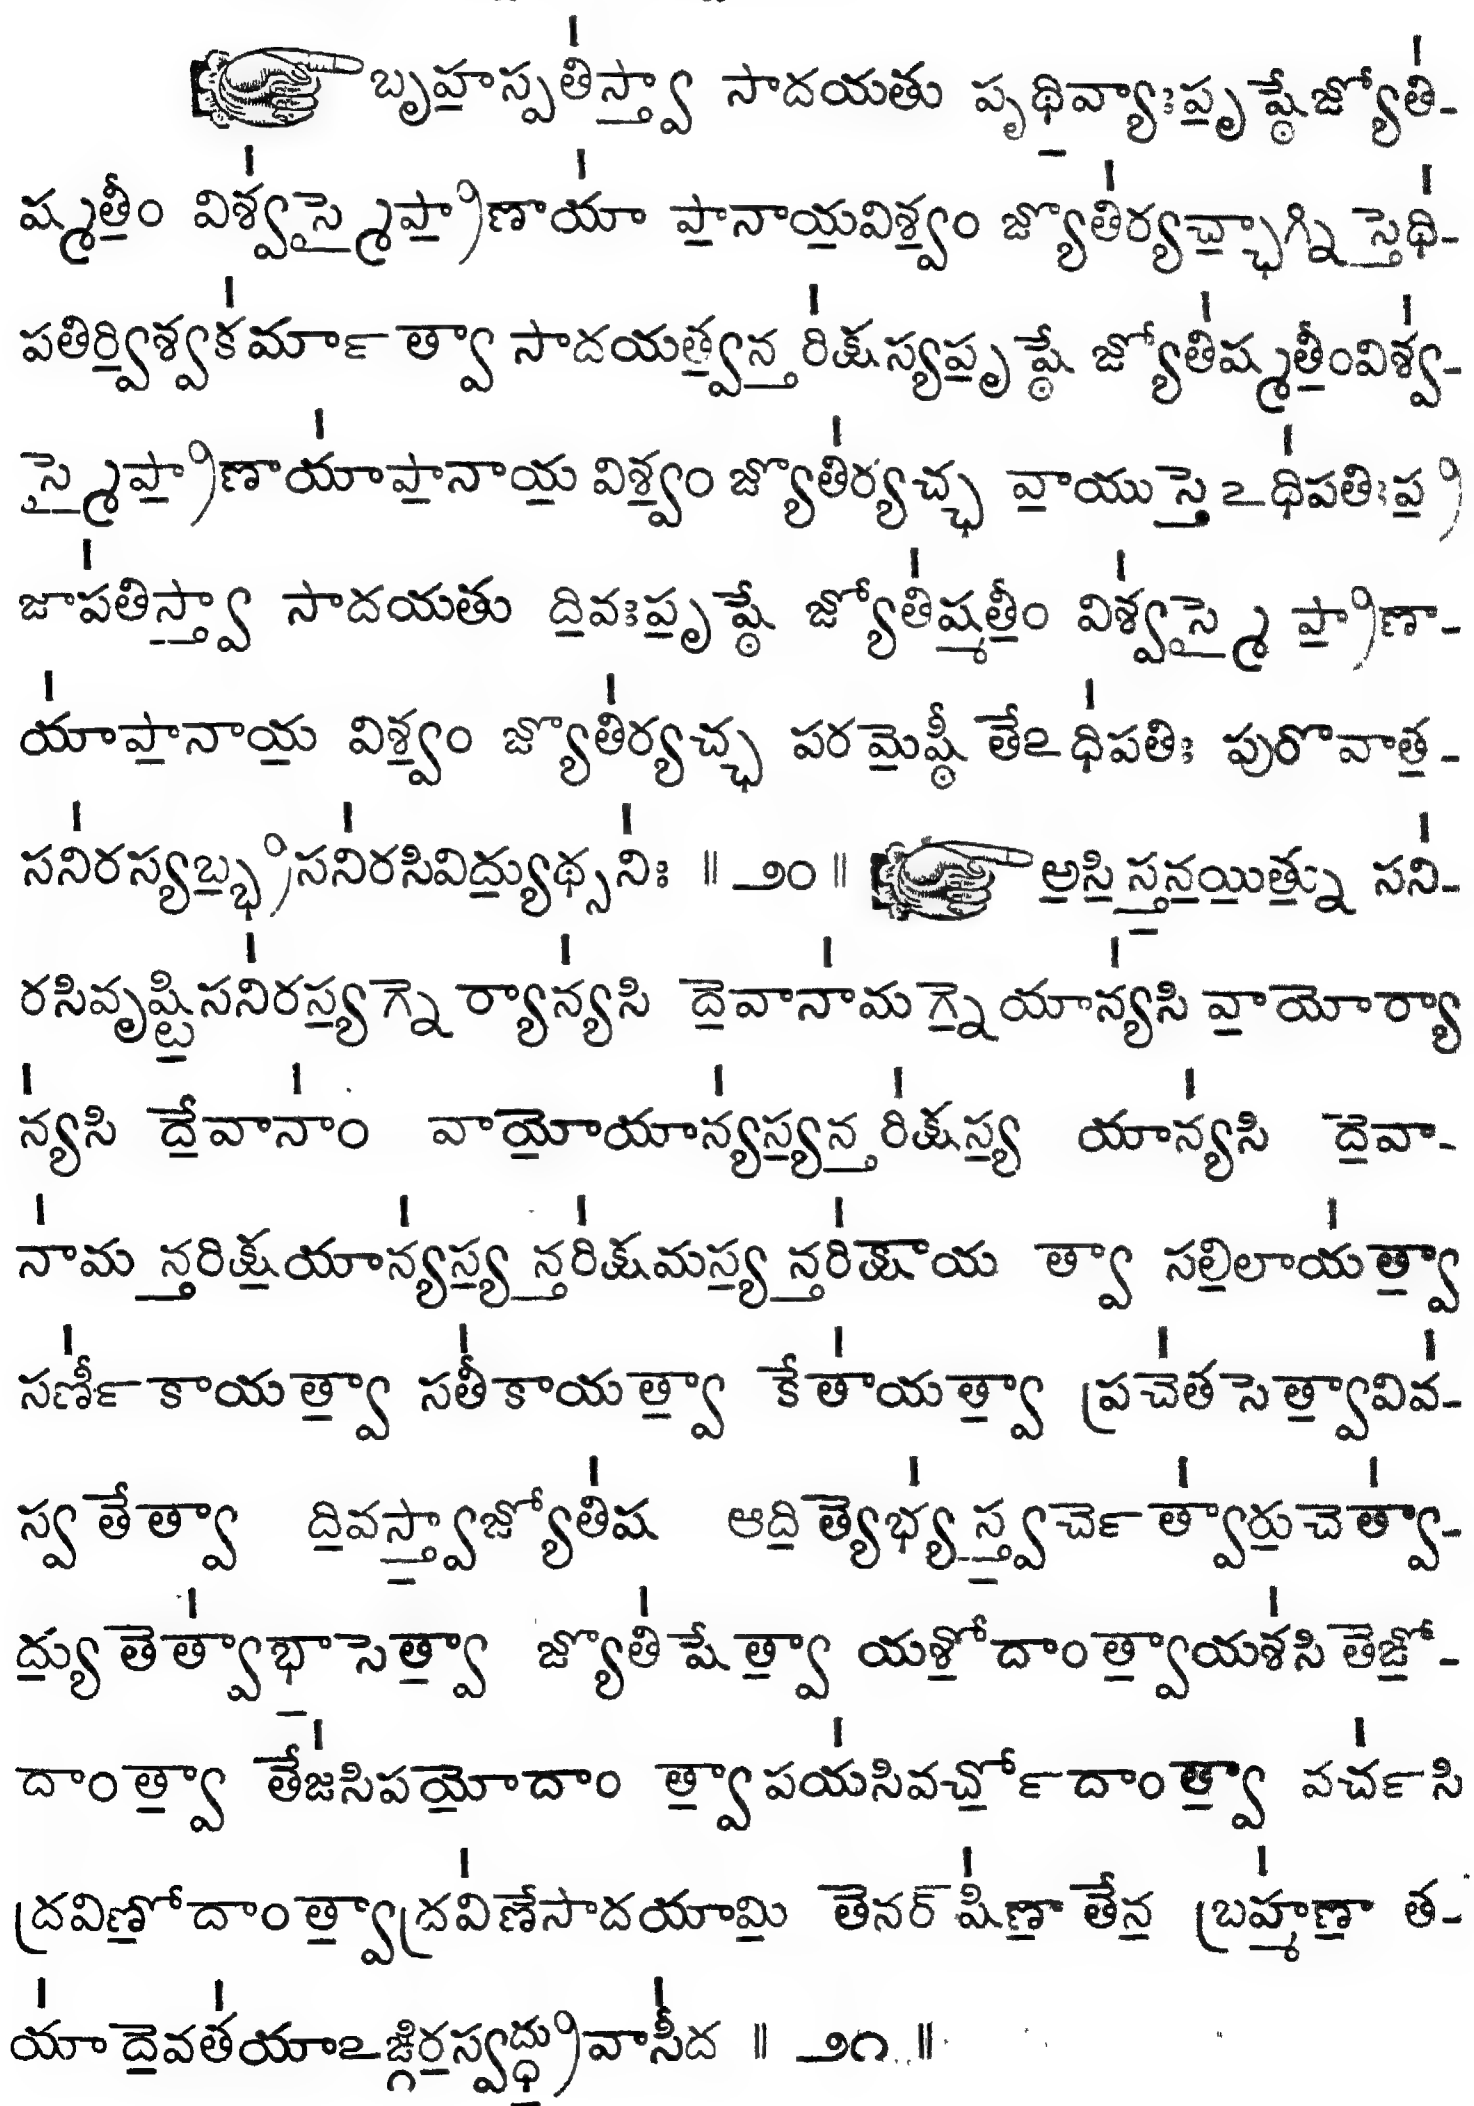 ☞ బృహ॒స్పతి॑స్త్వా సాదయతు పృథి॒వ్యాఃపృ॒ష్ఠేజ్యోతి॑-
ష్మ॒తీం విశ్వ॑స్మైప్రా॒ణాయా॑ పా॒నాయ॒విశ్వం జ్యోతి॑ర్యచ్ఛా॒గ్ని స్తెథి॑-
పతిర్వి॒శ్వక॑ర్మా త్వా సాదయత్వ॒న్తరి॑క్షస్యపృ॒ష్ఠే జ్యోతి॑ష్మ॒తీంవిశ్వ॑-
స్మైప్రా॒ణాయా॑పా॒నాయ॒ విశ్వం జ్యోతి॑ర్యచ్ఛ వా॒యుస్తె ఽధి॑పతిఃప్ర॒
జాప॑తిస్త్వా సాదయతు ది॒వఃపృ॒ష్ఠే జ్యోతి॑ష్మ॒తీం విశ్వ॑స్మై ప్రా॒ణా-
యా॑పా॒నాయ॒ విశ్వం జ్యోతి॑ర్యచ్ఛ పరమె॒ష్ఠీ తేఽధి॑పతిః పురొవాత॒-
సని॑రస్యబ్భ్ర॒సని॑రసివిద్యు॒థ్సని॑ః ॥ ౨౦ ॥ ☞ అ॒సి॒ స్త॒న॒యి॒త్ను సని॑-
రసివృష్టి॒సని॑రస్య॒గ్నె ర్యాన్య॑సి దె॒వానా॑మగ్నె॒యాన్య॑సి వా॒యోర్యా
న్య॑సి దే॒వానా॑ం వాయో॒యాన్య॑స్య॒న్తరి॑క్షస్య॒ యాన్య॑సి దె॒వా-
నా॑మ న్తరిక్ష॒యాన్య॑స్య॒ న్తరి॑క్షమస్య॒ న్తరి॑క్షాయ త్వా సలి॒లాయ॑త్వా॒
సర్ణీ॑కాయత్వా॒ సతీ॑కాయత్వా॒ కేతా॑యత్వా॒ ప్రచే॑తసెత్వా॒వివ॑-
స్వతేత్వా ది॒వస్త్వా॒జ్యోతి॑ష ఆది॒త్యెభ్య॑స్త్వ॒ర్చె త్వా॑రు॒చెత్వా॑-
ద్యు॒తెత్వా॑భా॒సెత్వా॒ జ్యోతి॑షేత్వా॒ యశో॒దాంత్వా॒యశ॑సి తెజో॒-
దాంత్వా॒ తేజ॑సిపయో॒దాం త్వా॒పయ॑సివర్చో॒దాంత్వా॒ వర్చ॑సి
ద్రవిణో॒దాంత్వా॒ద్రవి॑ణేసాదయామి॒ తెనర్‌షి॑ణా॒ తేన॒ బ్రహ్మ॑ణా॒ త-
యా॑ దె॒వత॑యాఽఙ్గిర॒స్వద్ధ్రు॒వాసీ॑ద ॥ ౨౧ ॥